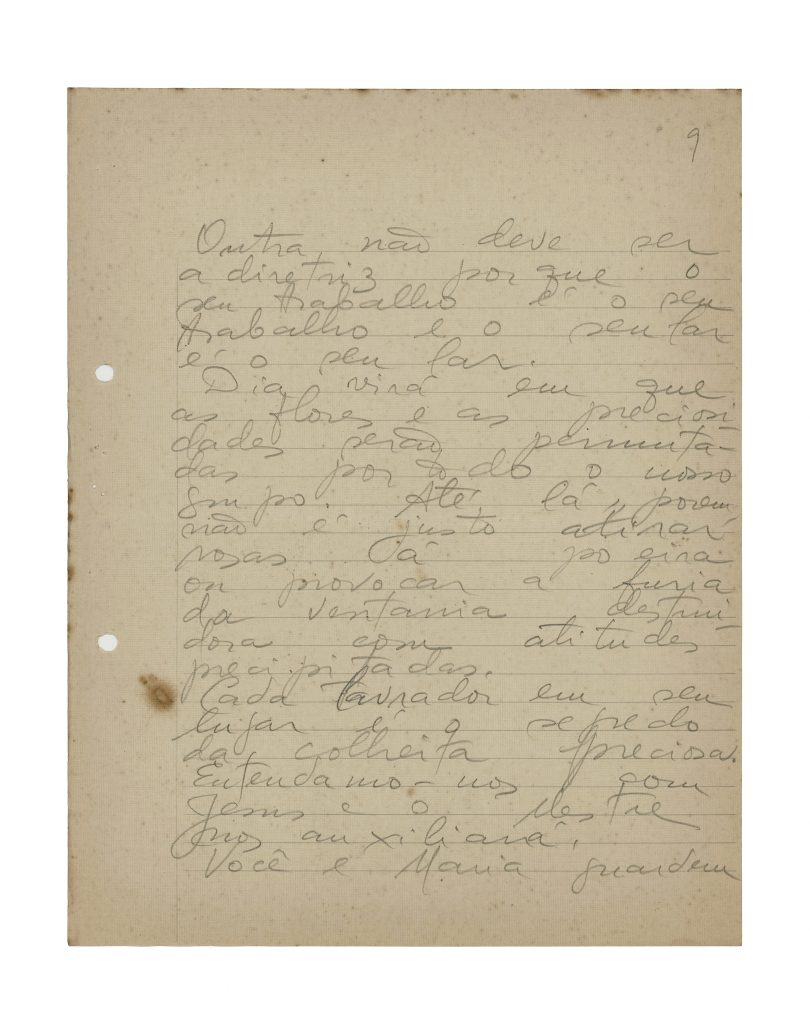 9
Outra não deve ser
a diretriz porque o
seu trabalho é o seu
trabalho e o seu lar
é o seu lar.
Dia virá em que
as flores e as preciosi-
dades serão permuta-
das por todo o nosso
grupo. Até lá, porem,
não é justo atirar
rosas á poeira
ou provocar a furia
da ventania destrui-
dora com atitudes
precipitadas.
Cada lavrador em seu
lugar é o segredo
da colheita preciosa.
Entendamo-nos com
Jesus e o Mestre
nos auxiliará.
Você e Maria guardem